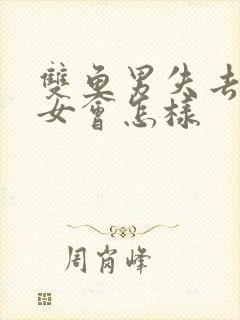 雙魚男失去
女會怎樣
周崗峰